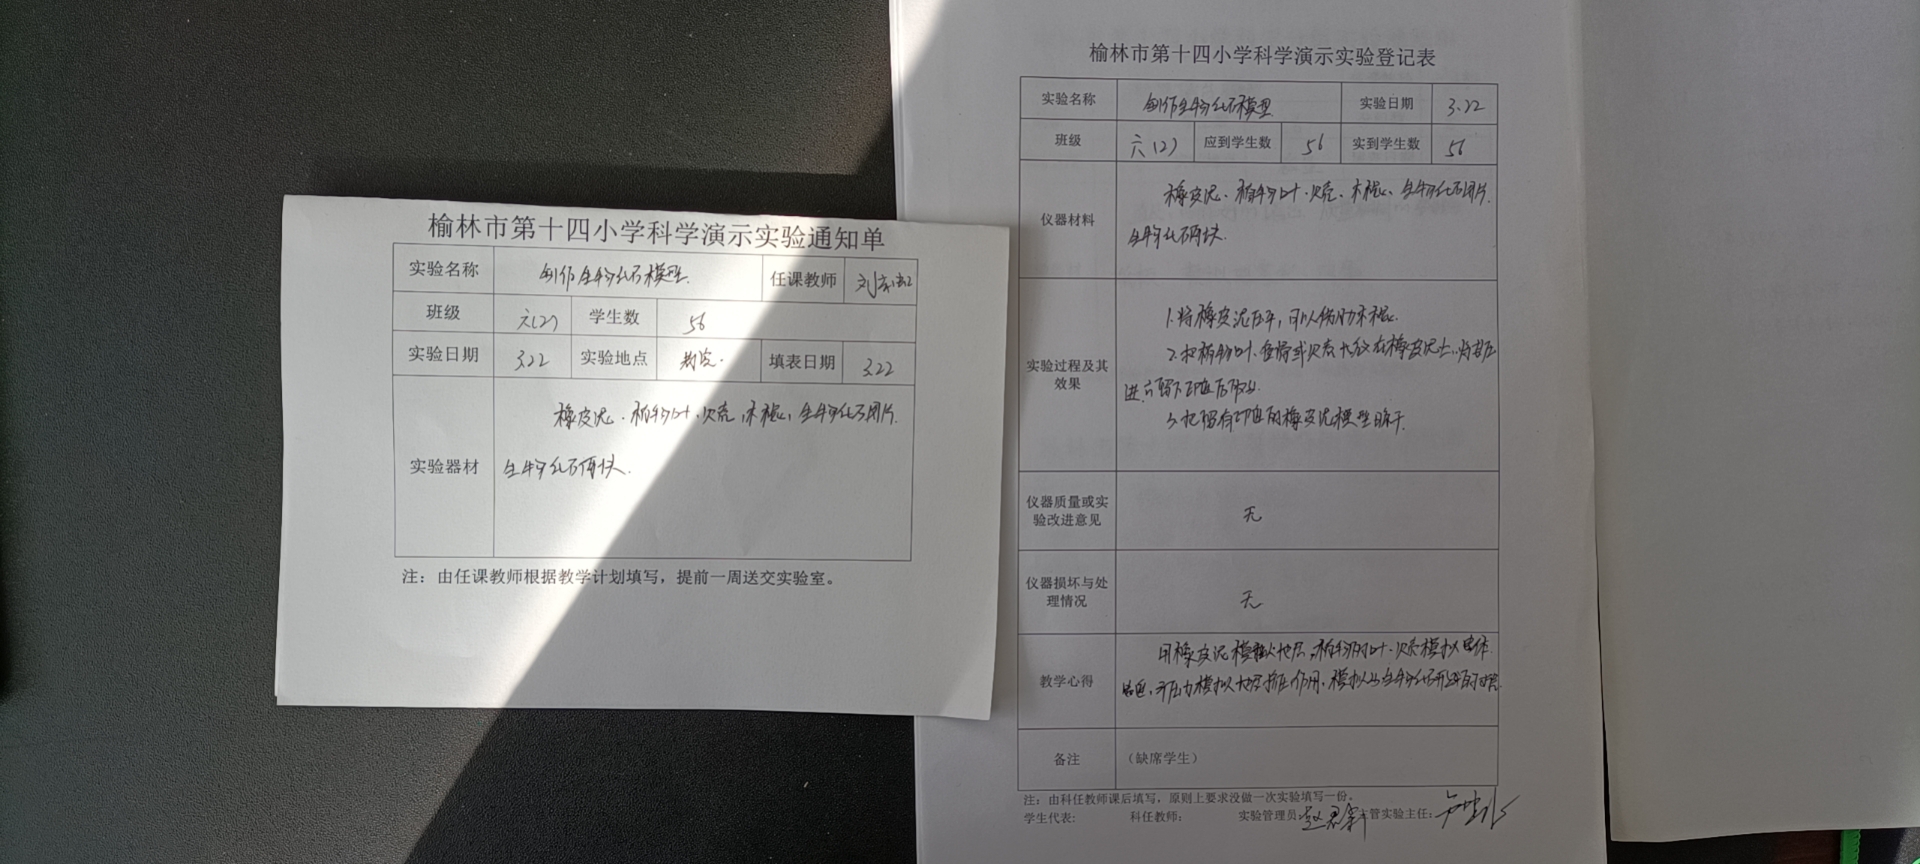 榆林市第十四小学科学演示实验通知单
实验名称 制作生物化石模型 任课教师
班级 六(2) 学生数 56
实验日期 3.22 实验地点 教室 填表日期 3.22
橡皮泥、植物叶、贝壳、木棍、生物化石图片
实验器材
生物化石两块.
注：由任课教师根据教学计划填写，提前一周送交实验室。
榆林市第十四小学科学演示实验登记表
实验名称 制作生物化石模型 实验日期 3.22
班级 六(2) 应到学生数 56 实到学生数 56
橡皮泥、植物叶、贝壳、木棍、生物化石图片.
仪器材料
生物化石两块.
1.将橡皮泥压平，可以借助木棍.
2.把植物叶、鱼骨或贝壳放在橡皮泥上,
实验过程及其
效果
留下印迹后取出.
3.把留有印迹的橡皮泥模型晾干.
仪器质量或实
验改进意见
无
仪器损坏与处
理情况
无
用橡皮泥模拟地层,植物的叶、贝壳模拟
教学心得
压力模拟地层挤压作用,模拟生物化石形成的
备注 （缺席学生）
注：由科任教师课后填写，原则上要求没做一次实验填写一份。
学生代表: 科任教师: 实验管理员: 主管实验主任: